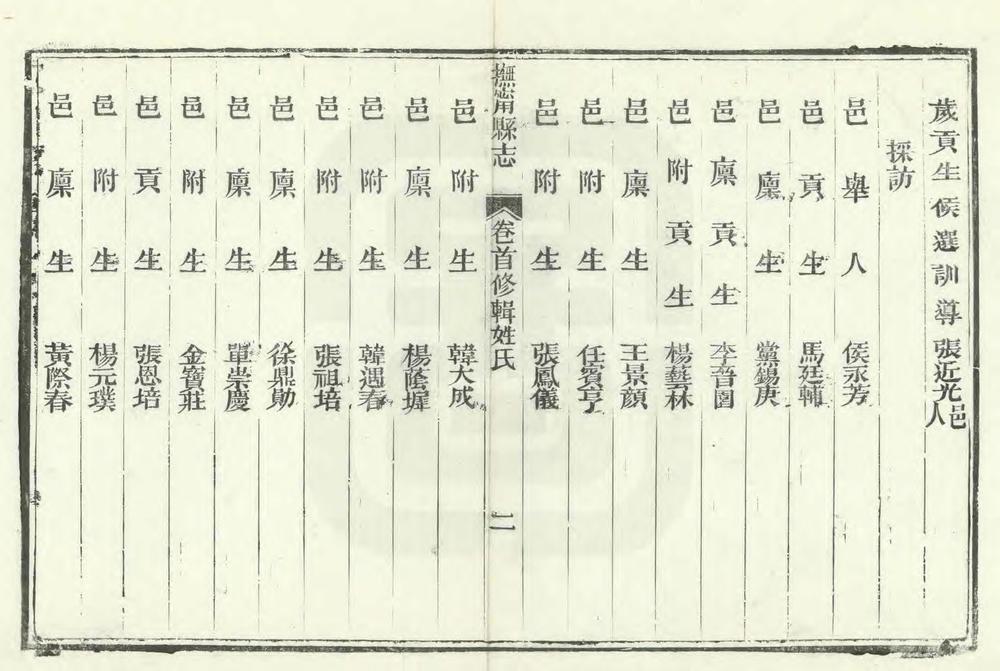 歲貢生候選訓導張近光邑人
採訪
邑舉人侯永芳
邑貢生馬廷輔
邑廩生黨錫庚
邑廩貢生李晉園
邑附貢生楊藝林
邑廩生王景顏
邑附生任賓亭
邑附生張鳳儀
撫甯縣志 卷首修輯姓氏 二
邑附生韓大成
邑廩生楊蔭墀
邑附生韓遇春
邑附生張祖培
邑廩生徐鼎勛
邑廩生單崇慶
邑附生金寶莊
邑貢生張恩培
邑附生楊元璞
邑廩生黃際春